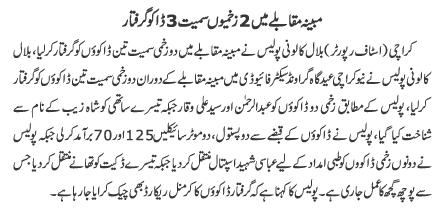 مبینہ مقابلے میں 2 زخمیوں سمیت 3 ڈاکو گرفتار
کراچی (اسٹاف رپورٹر) بلال کالونی پولیس نے مبینہ مقابلے میں دو زخمی سمیت تین ڈاکوؤں کو گرفتار کرلیا، بلال
کالونی پولیس نے نیو کراچی عیدگاہ گراونڈ سیکٹر فائیو ڈی میں مبینہ مقابلے کے دوران دو زخمی سمیت تین ڈاکوؤں کو گرفتار
کرلیا، پولیس کے مطابق زخمی دو ڈاکوؤں کو عبدالرحمٰن اور سید علی وقار جبکہ تیسرے ساتھی کو شاہ زیب کے نام سے
شناخت کیا گیا، پولیس نے ڈاکوؤں کے قبضے سے دو پستول، دو موٹر سائیکلیں 125 اور 70 برآمد کرلی جبکہ پولیس
نے دونوں زخمی ڈاکوؤں کو طبی امداد کے لیے عباسی شہید اسپتال منتقل کردیا جبکہ تیسرے ڈکیت کو تھانے منتقل کردیا جس
سے پوچھ گچھ کا عمل جاری ہے۔ پولیس کا کہنا ہے کہ گرفتار ڈاکوؤں کا کرمنل ریکارڈ بھی چیک کرایا جارہا ہے۔